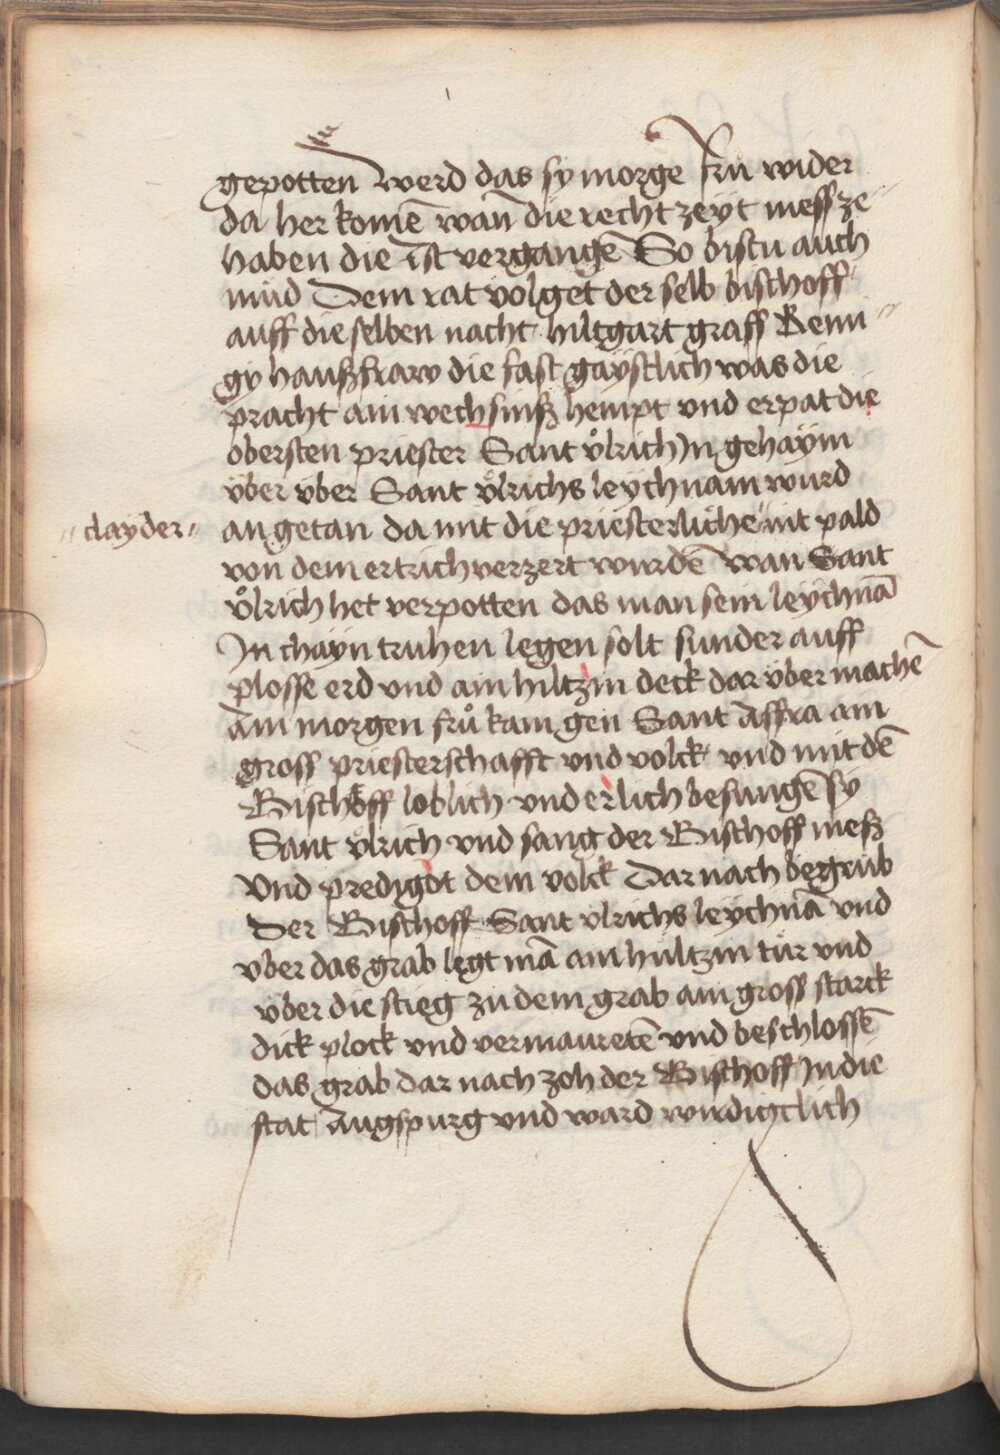 gepotten werd das sy morgē frü wider
da her komē wan̄ die recht zeyt mess ze
haben die ist vergangē So bistu auch
müd Dem rat volget der selb bischoff
auff die selben nacht hiltgart graff Remi
gy haußfraw die fast gaÿstlich was die
pracht ain wechsinß hempt vnd erpat die
obersten priester Sant vͦlrich In gehaÿm
vber vber Sant vͦlrichs leÿchnam wurd
clayder
an getan da mit die priesterliche nit pald
von dem ertrich verzert wurdē wan Sant
vͦlrich het verpotten das man sein leÿchnā
In chayn truhen legen solt sunder auff
plosse erd vnd ain hiltzin deck dar vber machē
Am morgen frü kam gen Sant Affra ain
gross priesterschafft vnd volck vnd mit dē
Bischoff loblich vnd erlich besungē sy
Sant vͦlrich vnd sang der Bischoff meß
Vnd predigot dem volck Dar nach begrüb
Der Bischoff Sant vlrichs leÿchnā vnd
vber das grab legt mā ain hültzin tür vnd
vber die stieg zü dem grab ain gross starck
dick plock vnd vermauretē vnd beschlossē
das grab dar nach zoh der Bischoff In die
stat Augspurg vnd ward wirdigclich